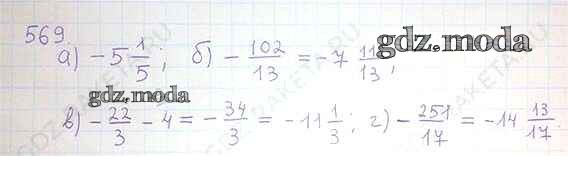 569
а) -5 1/5; б) - 102/13 = -7 11/13;
gdz.moda
gdz.moda
в) - 22/3 - 4 = - 34/3 = -11 1/3; г) - 251/17 = -14 13/17